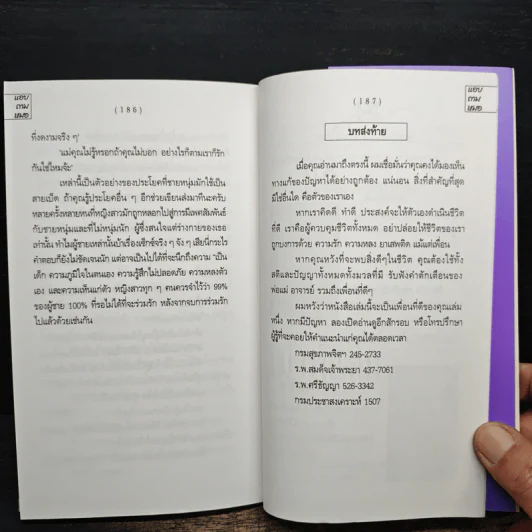 แอบ
ถาม
หมอ
(186)
ที่งดงามจริง ๆ'
'แม่คุณไม่รู้หรอกถ้าคุณไม่บอก อย่างไรก็ตามเราก็รัก
กันใช่ไหมจ๊ะ'
เหล่านี้เป็นตัวอย่างของประโยคที่ชายหนุ่มมักใช้เป็น
สายเบ็ด ถ้าคุณรู้ประโยคอื่น ๆ อีกช่วยเขียนส่งมาทีนะครับ
หลายครั้งหลายหนที่หญิงสาวมักถูกหลอกไปสู่การมีเพศสัมพันธ์
กับชายหนุ่มและที่ไม่หนุ่มนัก ผู้ซึ่งสนใจแต่ร่างกายของเธอ
เท่านั้น ทำไมผู้ชายเหล่านั้นบ้าเรื่องเซ็กซ์จริง ๆ จัง ๆ เสียนี่กระไร
คำตอบก็ยังไม่ชัดเจนนัก แต่อาจเป็นไปได้ที่จะนึกถึงความ เป็น
เด็ก ความภูมิใจในตนเอง ความรู้สึกไม่ปลอดภัย ความหลงตัว
เอง และความเห็นแก่ตัว หญิงสาวทุก ๆ คนควรจำไว้ว่า 99%
ของผู้ชาย 100% ที่รอไม่ได้ที่จะร่วมรัก หลังจากจบการร่วมรัก
ไปแล้วด้วยเช่นกัน
แอบ
ถาม
หมอ
(187)
บทส่งท้าย
เมื่อคุณอ่านมาถึงตรงนี้ ผมเชื่อมั่นว่าคุณคงได้มองเห็น
ทางแก้ของปัญหาได้อย่างถูกต้อง แน่นอน สิ่งที่สำคัญที่สุด
มิใช่อื่นใด คือตัวของเราเอง
หากเราคิดดี ทำดี ประสงค์จะให้ตัวเองดำเนินชีวิต
ที่ดี เราคือผู้ควบคุมชีวิตทั้งหมด อย่าปล่อยให้ชีวิตของเรา
ถูกบงการด้วย ความรัก ความหลง ยาเสพติด แม้แต่เพื่อน
หากคุณหวังที่จะพบสิ่งดีๆในชีวิต คุณต้องใช้ทั้ง
สติและปัญญาทั้งหมดทั้งมวลที่มี รับฟังคำตักเตือนของ
พ่อแม่ อาจารย์ รวมถึงเพื่อนที่ดีๆ
ผมหวังว่าหนังสือเล่มนี้จะเป็นเพื่อนที่ดีของคุณเล่ม
หนึ่ง หากมีปัญหา ลองเปิดอ่านดูอีกสักรอบ หรือโทรปรึกษา
ผู้รู้ที่จะคอยให้คำแนะนำแก่คุณได้ตลอดเวลา
กรมสุขภาพจิตฯ 245-2733
ร.พ.สมเด็จเจ้าพระยา 437-7061
ร.พ.ศรีธัญญา 526-3342
กรมประชาสงเคราะห์ 1507